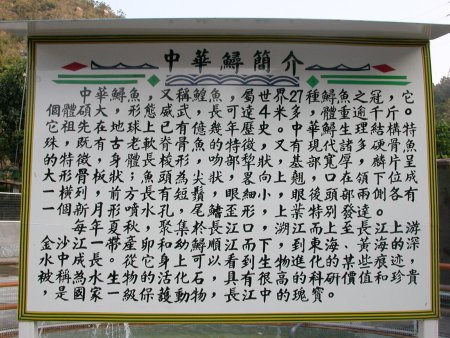 中華鱘簡介
中華鱘魚，又稱鰉魚，屬世界27種鱘魚之冠，它
個體碩大，形態威武，長可達4米多，體重逾千斤。
它祖先在地球上已有億幾年歷史。中華鱘生理結構特
殊，既有古老軟骨魚的特徵，又有現代諸多硬骨魚
的特徵，身體長梭形，吻部犁狀，基部寬厚，吻端尖
大形骨板狀；頭為尖狀，上翹，口在頜下，成
一橫列，前方長有短鬚，眼細小，眼後頭部兩側各有
一個新月形噴水孔，尾鰭歪形，上葉特別發達。
每年夏秋，聚集於長江口，溯江而上至長江上游
金沙江一帶產卵和幼鱘順江而下，到東海、黃海的深
水中成長。從它身上可以看到生物進化的某些痕迹，
被稱為水生物的活化石，具有很高的科研價值和珍貴
，是國家一級保護動物，長江中的瑰寶。